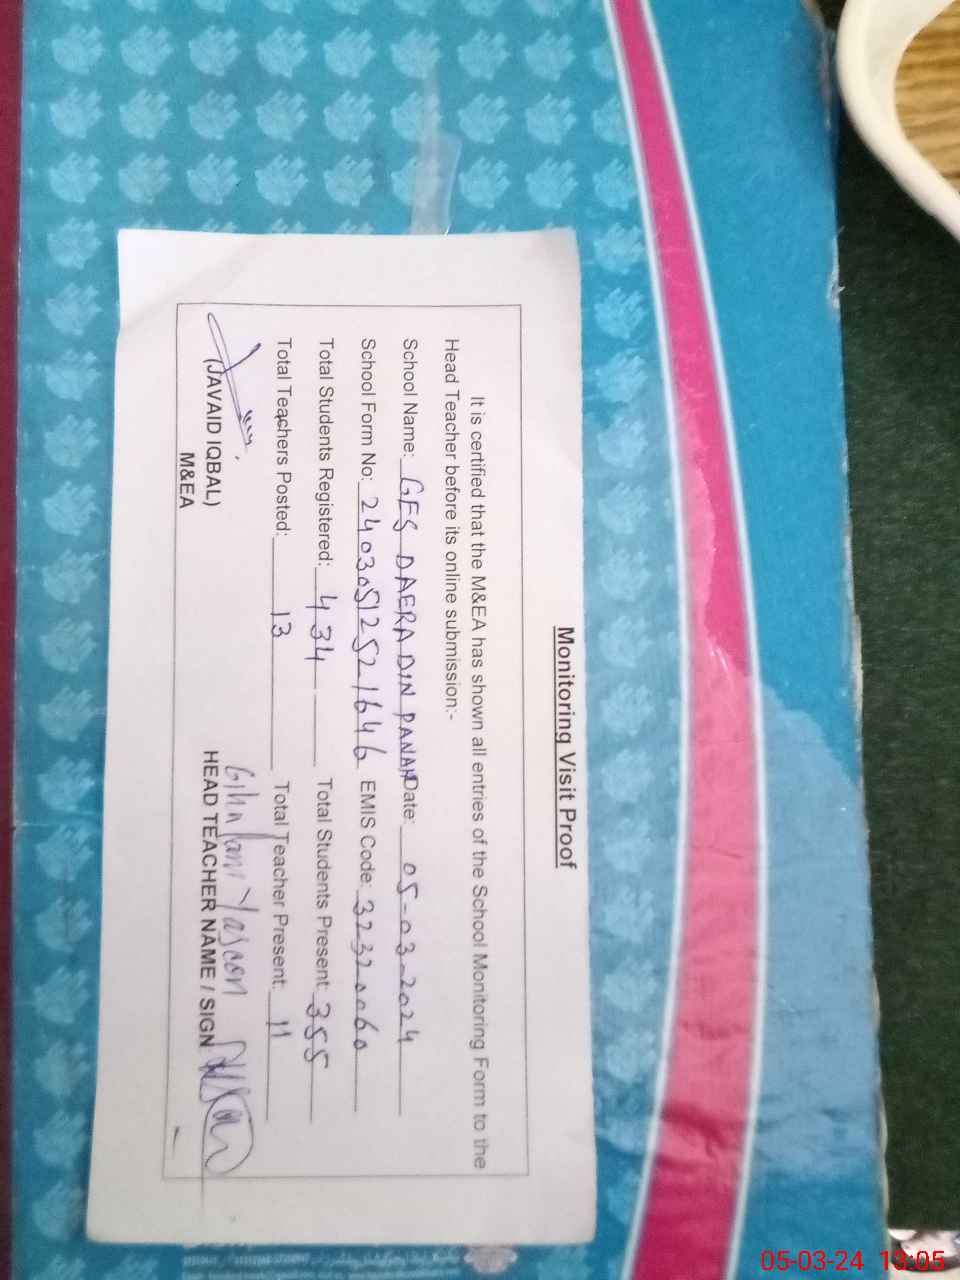 Monitoring Visit Proof
It is certified that the M&EA has shown all entries of the School Monitoring Form to the
Head Teacher before its online submission:-
School Name: GES DAERA DIN PANAH Date: 05-03-2024
School Form No: 24030512521646 EMIS Code: 32320060
Total Students Registered: 434 Total Students Present: 355
Total Teachers Posted: 13 Total Teacher Present: 11
(JAVAID IQBAL)
M&EA
Yaseen
HEAD TEACHER NAME / SIGN
05-03-24 13:05